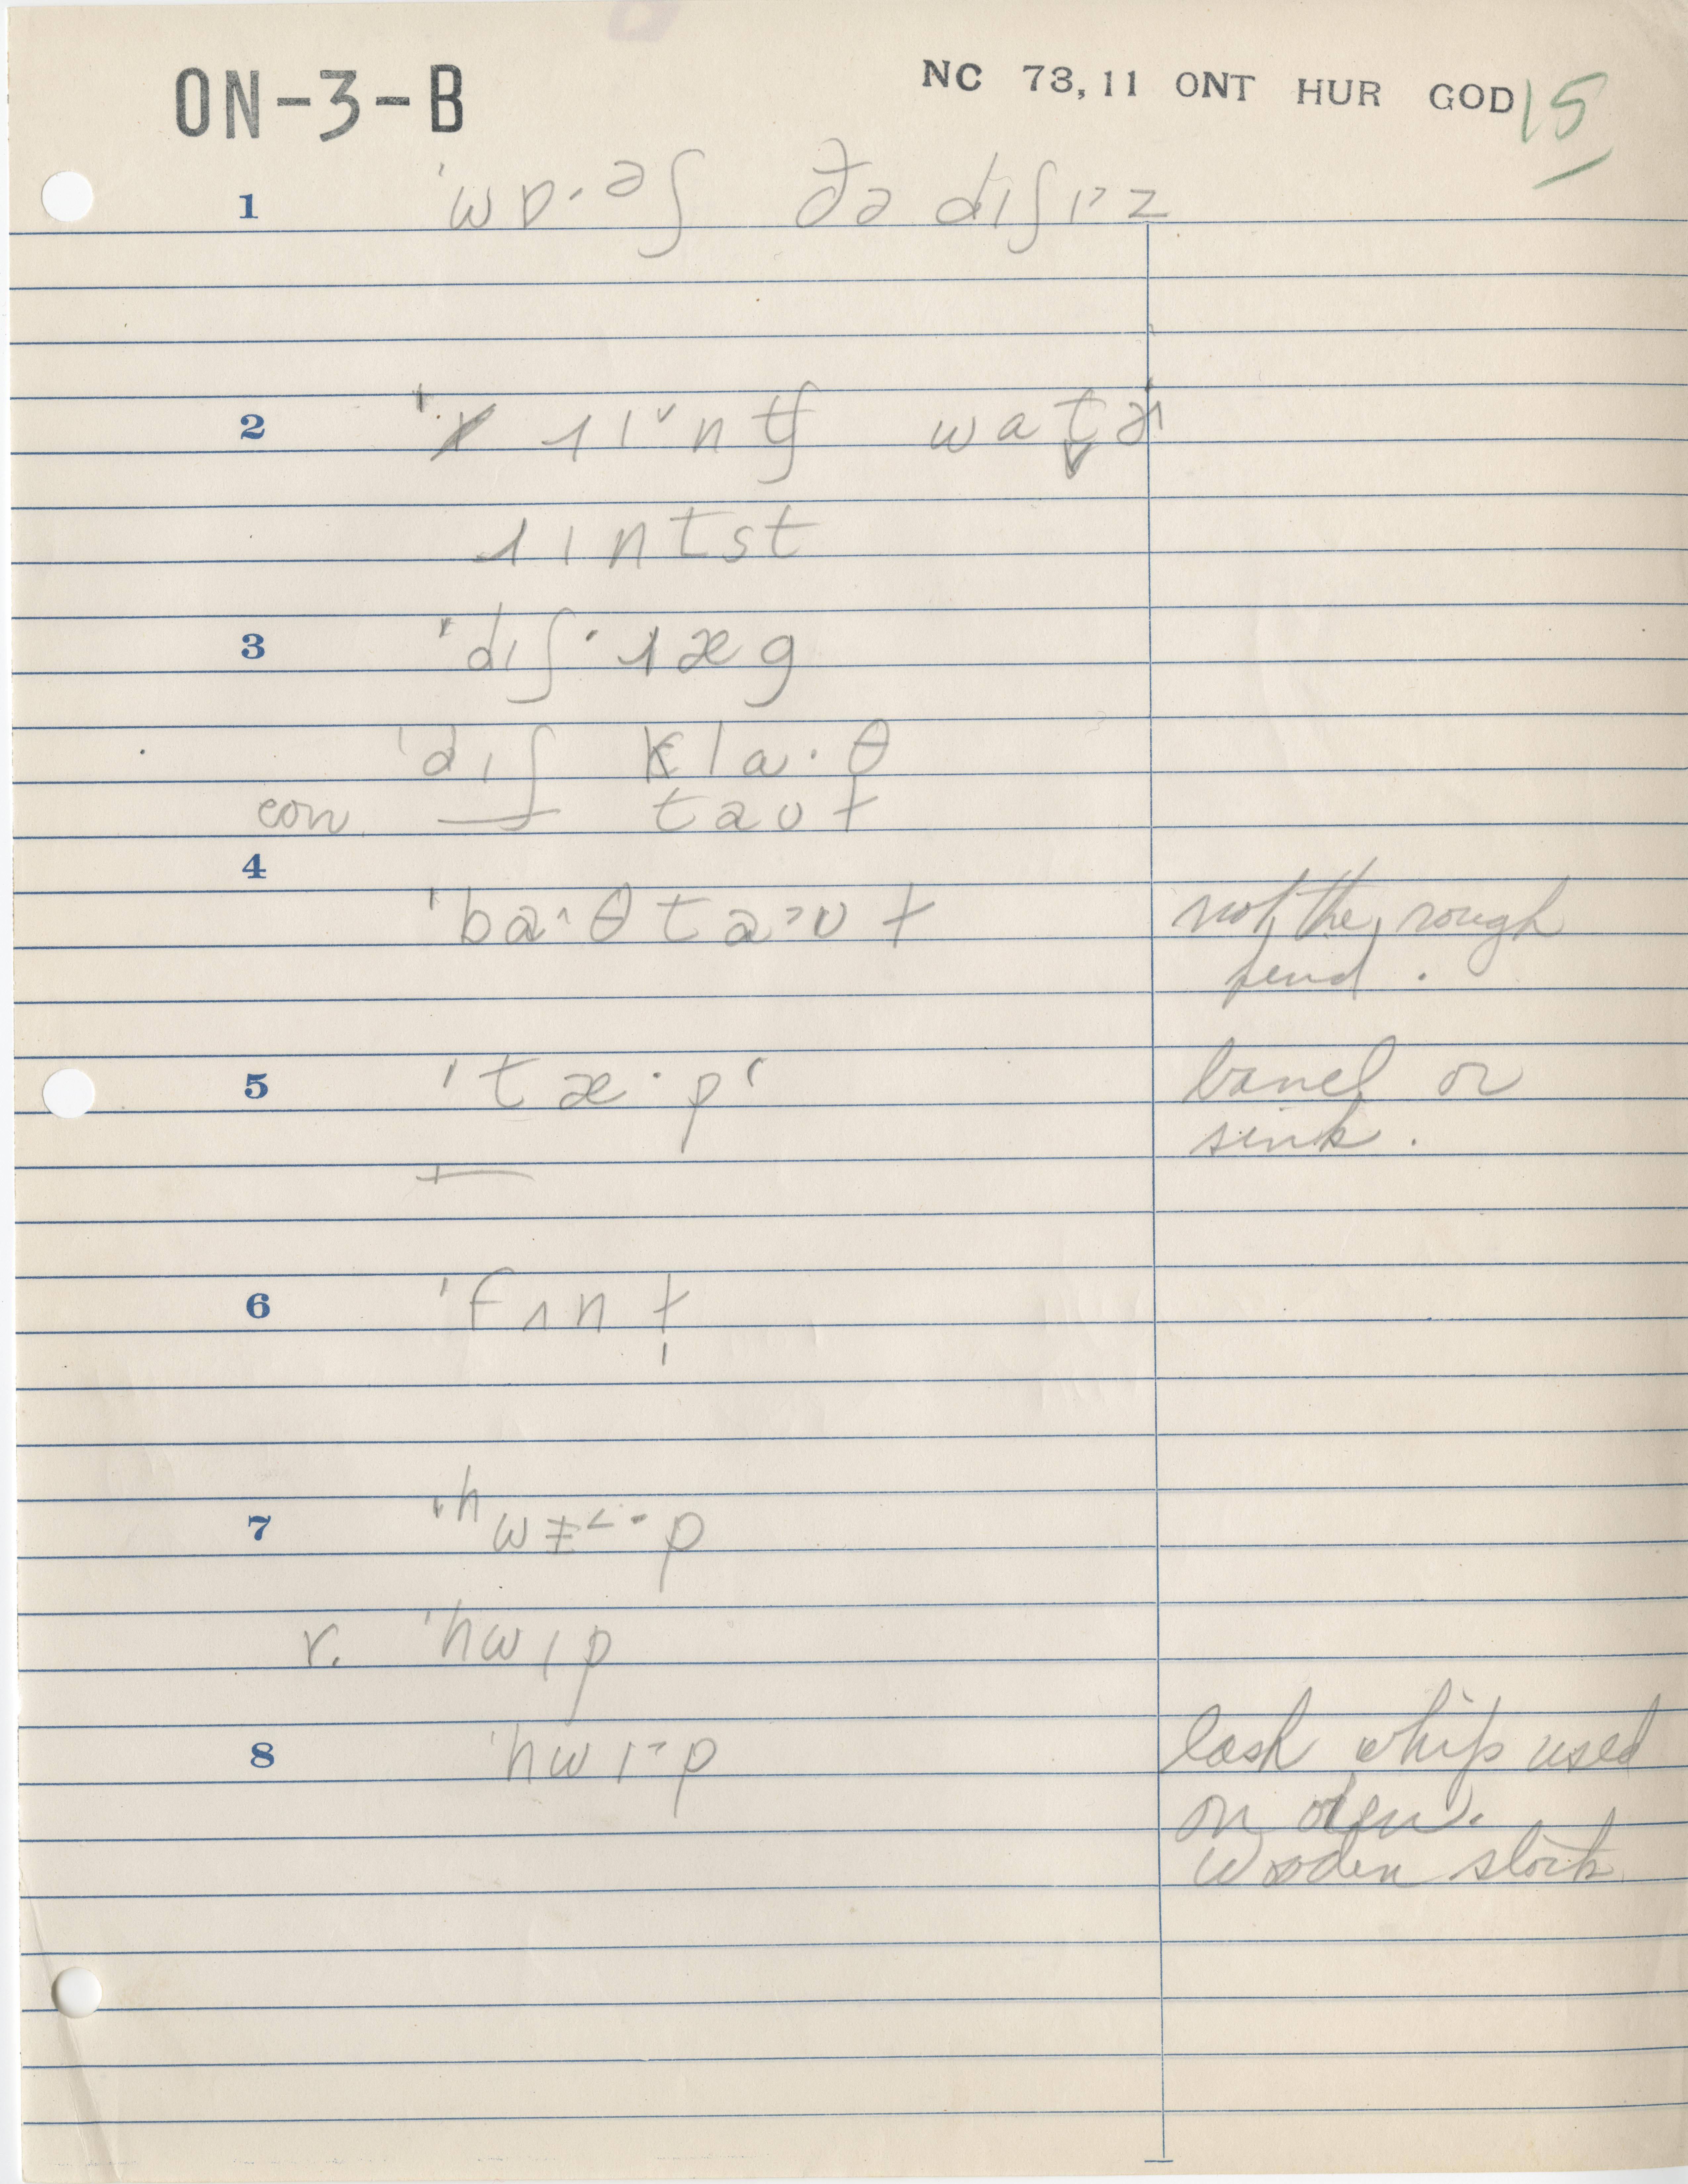 ON-3-B
NC 73,11 ONT HUR GOD 15
1 ˈwɒ·əʃ ðə dɪʃɪᵊz
2 ˈɹɪ˅ntʃ watɚ
ɹɪntst
3 ˈdɪʃ·ɹæg
ˈdɪʃ kla·θ
con. taʊɫ
4
ˈba˄·θ ta˃ʊɫ not the rough
kind.
5 ˈtæ·pʻ barrel or
sink.
6 ˈfʌnɫ̩
7 ˈʰwɪ˂·p
r. ˈhwɪp
8 ˈhwɪ·p lash whip used
on oxen.
wooden stock